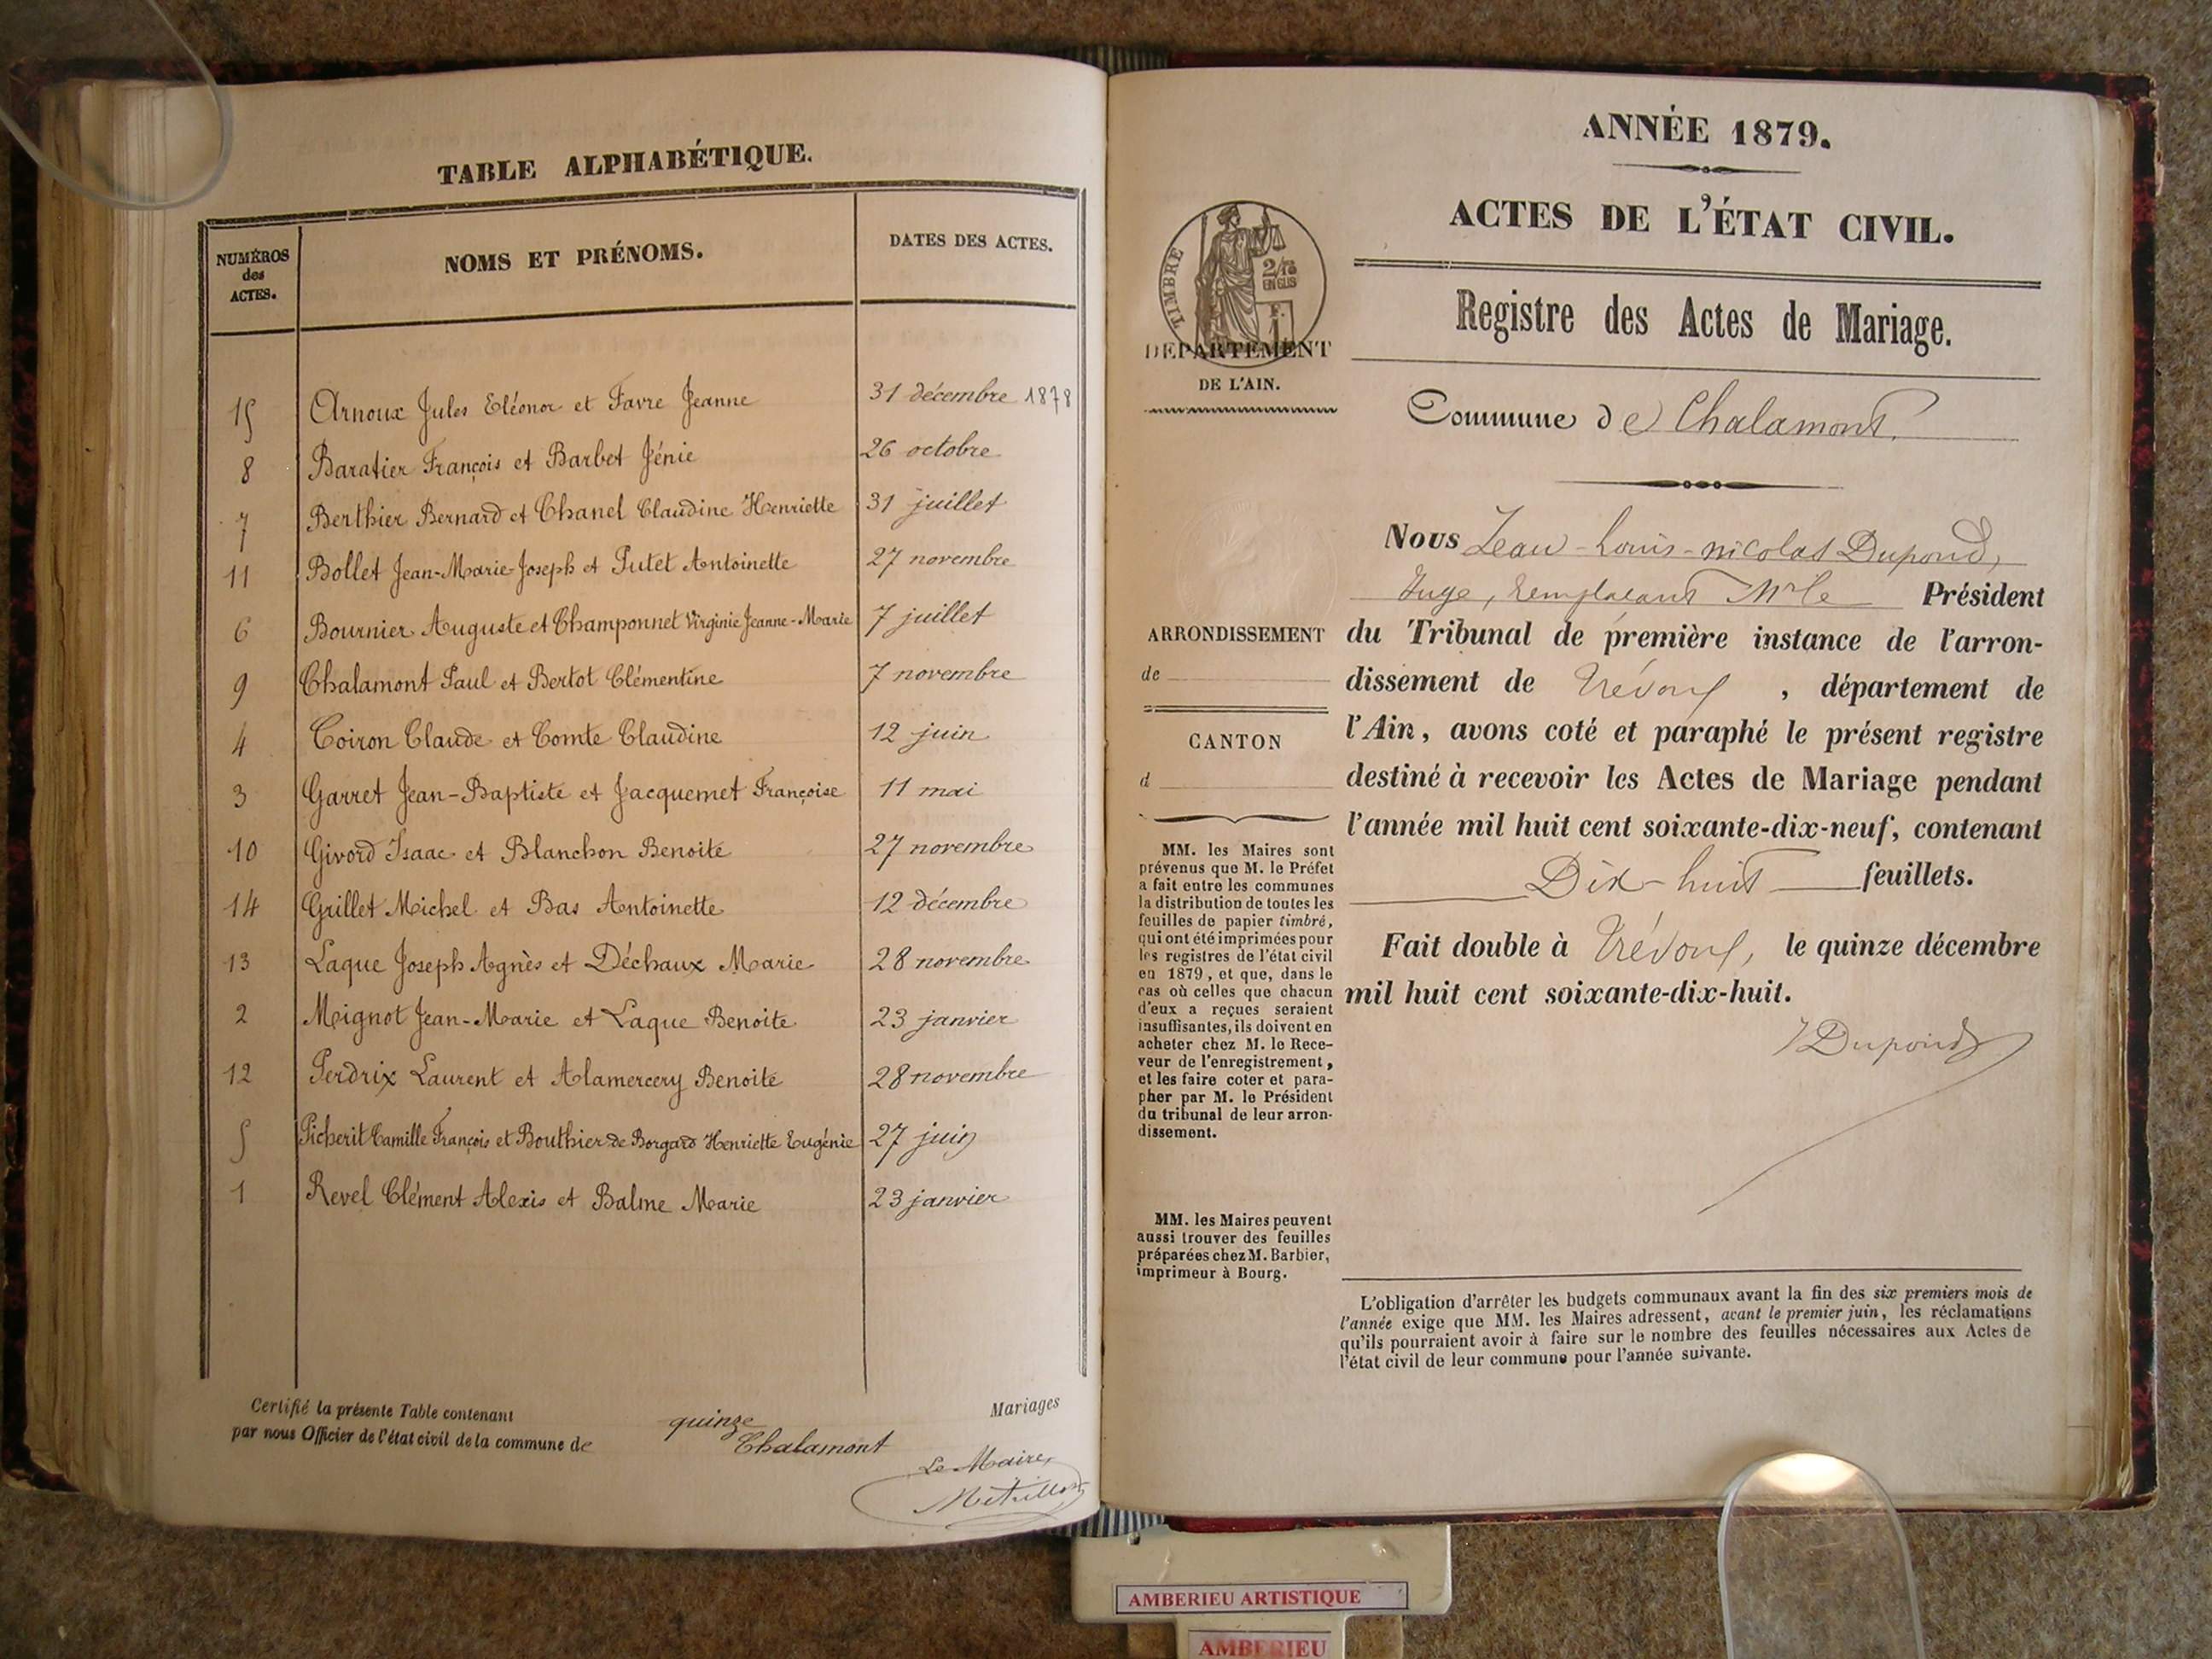 TABLE ALPHABÉTIQUE.
NUMÉROS des ACTES.
NOMS ET PRÉNOMS.
DATES DES ACTES.
15 Arnoux Jules Eléonor et Favre Jeanne 31 décembre 1878
8 Baratier François et Barbet Jénie 26 octobre
7 Berthier Bernard et Chanel Claudine Henriette 31 juillet
11 Bollet Jean-Marie-Joseph et Putet Antoinette 27 novembre
6 Bournier Auguste et Champonnet Virginie Jeanne-Marie 7 juillet
9 Chalamont Paul et Bertot Clémentine 7 novembre
4 Coiron Claude et Comte Claudine 12 juin
3 Garret Jean-Baptiste et Jacquemet Françoise 11 mai
10 Givord Isaac et Blanchon Benoite 27 novembre
14 Grillet Michel et Bas Antoinette 12 décembre
13 Laque Joseph Agnès et Déchaux Marie 28 novembre
2 Mignot Jean-Marie et Laque Benoite 23 janvier
12 Perdrix Laurent et Alamercery Benoite 28 novembre
5 Picherit Camille François et Bouthier de Borgard Henriette Eugénie 27 juin
1 Revel Clément Alexis et Balme Marie 23 janvier
Certifié la présente Table contenant quinze Mariages
par nous Officier de l'état civil de la commune de Chalamont
Le Maire,
ANNÉE 1879.
ACTES DE L'ÉTAT CIVIL.
Registre des Actes de Mariage.
Commune de Chalamont.
TIMBRE
2/10 EN SUS
F. 1
DÉPARTEMENT
DE L'AIN.
ARRONDISSEMENT
de
CANTON
d
MM. les Maires sont
prévenus que M. le Préfet
a fait entre les communes
la distribution de toutes les
feuilles de papier timbré,
qui ont été imprimées pour
les registres de l'état civil
en 1879, et que, dans le
cas où celles que chacun
d'eux a reçues seraient
insuffisantes, ils doivent en
acheter chez M. le Rece-
veur de l'enregistrement,
et les faire coter et para-
pher par M. le Président
du tribunal de leur arron-
dissement.
MM. les Maires peuvent
aussi trouver des feuilles
préparées chez M. Barbier,
imprimeur à Bourg.
Nous Jean-Louis-Nicolas Dupond,
Juge, remplaçant Mr le Président
du Tribunal de première instance de l'arron-
dissement de Trévoux, département de
l'Ain, avons coté et paraphé le présent registre
destiné à recevoir les Actes de Mariage pendant
l'année mil huit cent soixante-dix-neuf, contenant
Dix-huit feuillets.
Fait double à Trévoux, le quinze décembre
mil huit cent soixante-dix-huit.
Dupond
L'obligation d'arrêter les budgets communaux avant la fin des six premiers mois de
l'année exige que MM. les Maires adressent, avant le premier juin, les réclamations
qu'ils pourraient avoir à faire sur le nombre des feuilles nécessaires aux Actes de
l'état civil de leur commune pour l'année suivante.
AMBERIEU ARTISTIQUE
AMBERIEU